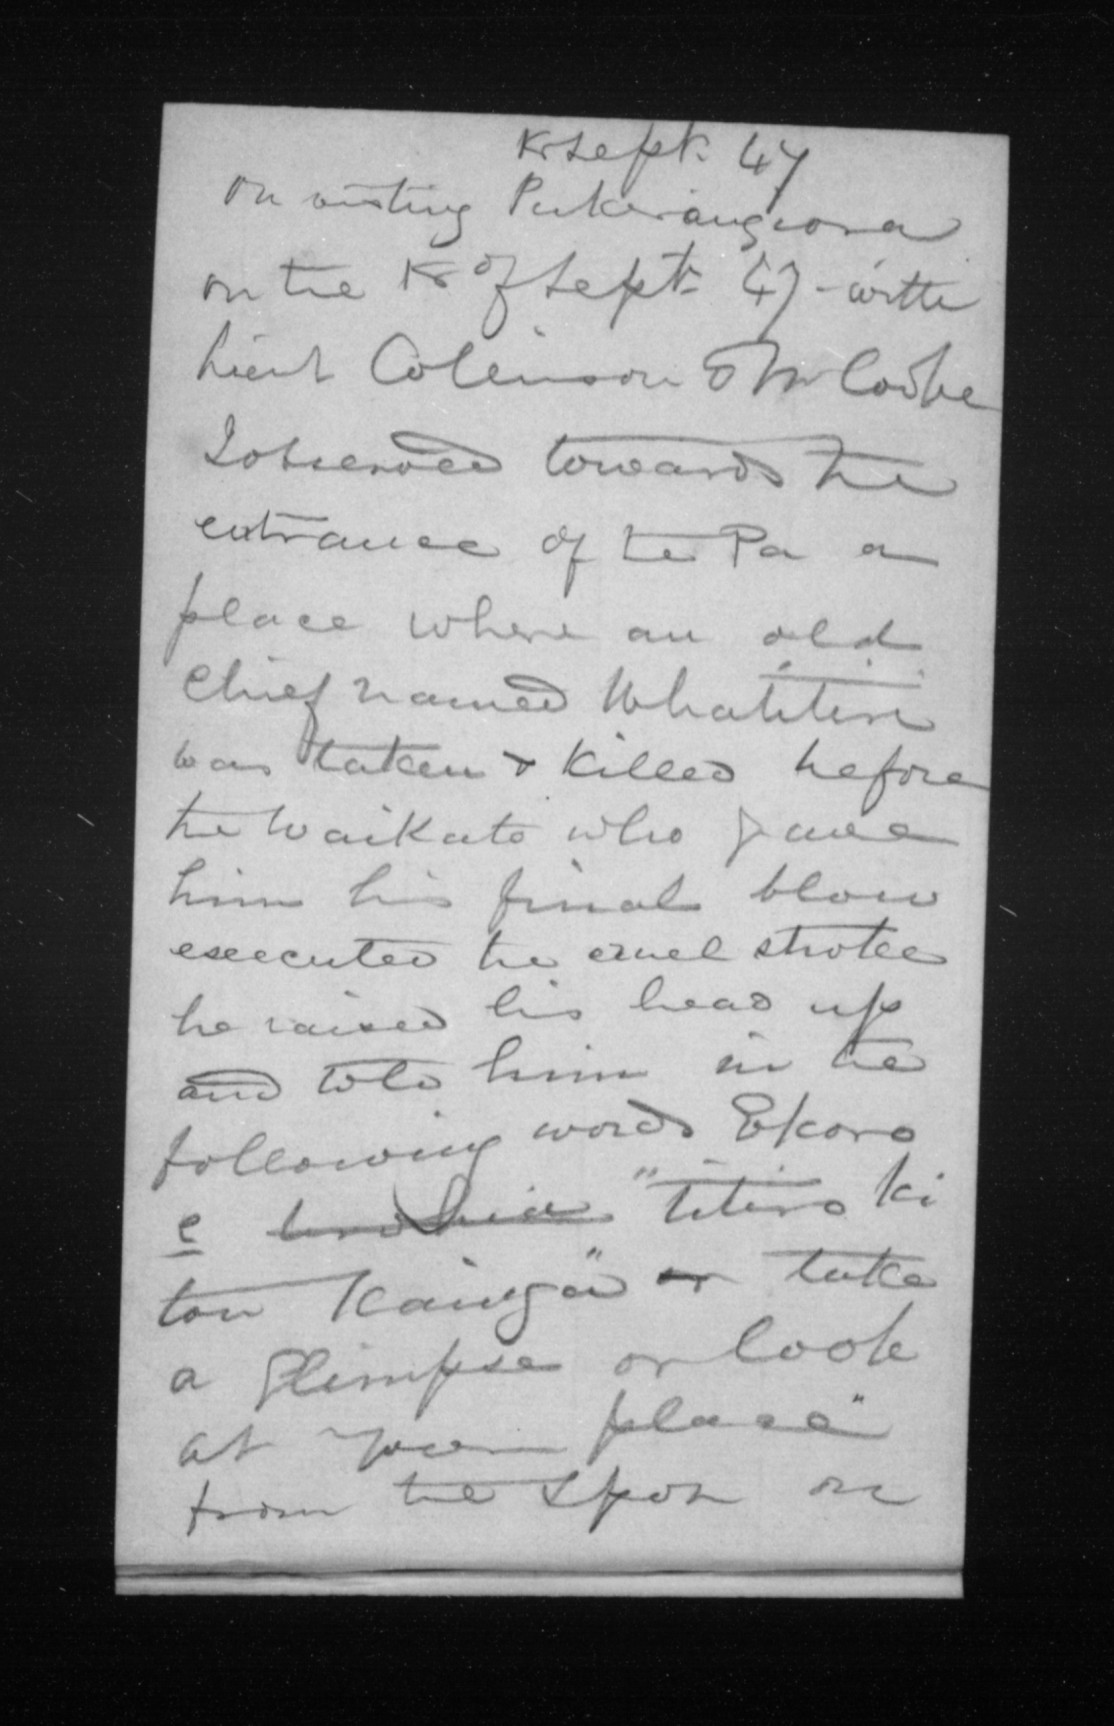 Sept. 47
On visiting Pukerangiora
on the of Sept. 47 - with
Lieut Colinson & Mr Cooke
I observed towards the
entrance of the Pa a
place where an old
Chief named Whatitiri
was taken & killed before
the Waikato who gave
him his final blow
executed the cruel stroke
he raised his head up
and told him in the
following words Ekoro
e "titiro ki
tou Kainga" or take
a glimpse or look
at your place"
from the spot on